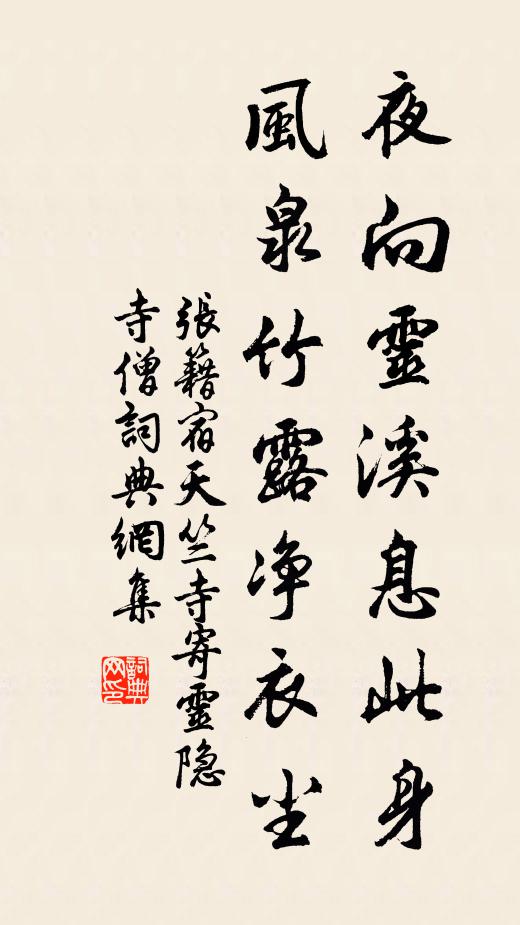 夜向靈溪息此身
風泉竹露净衣尘
張籍宿天竺寺寄靈隐
寺僧詞典網集
詞典
网印